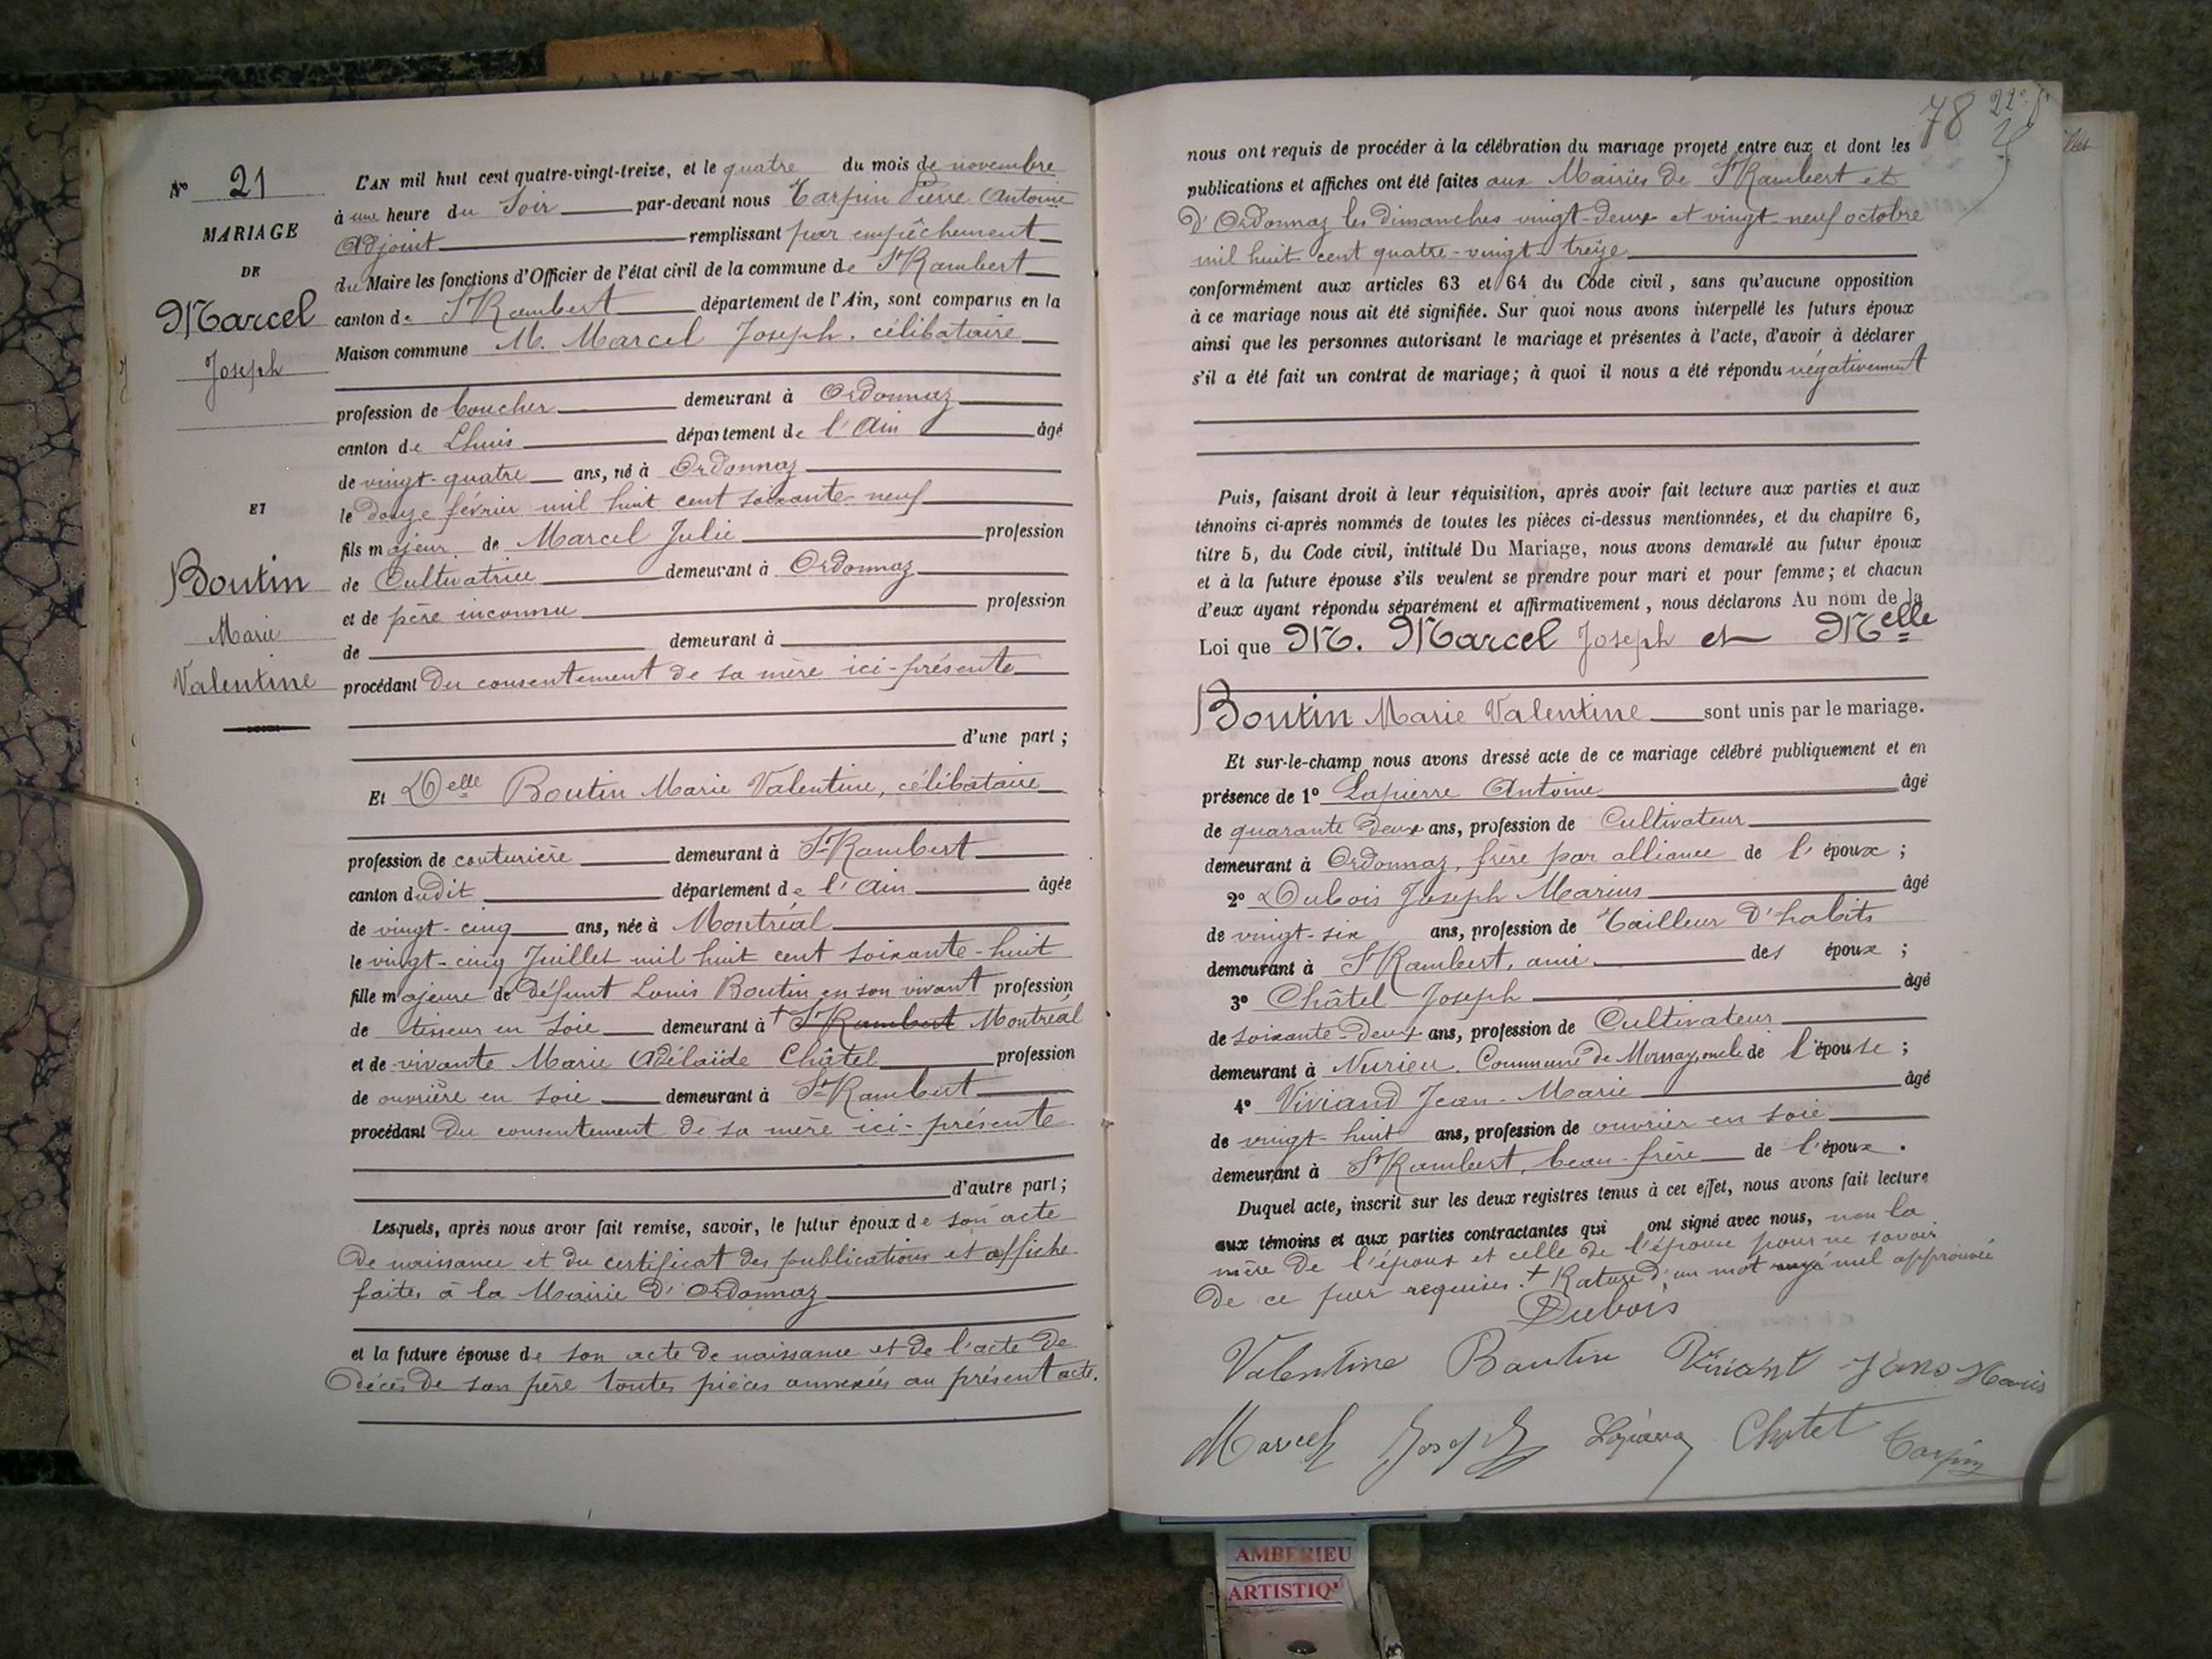 N° 21
MARIAGE
DE
Marcel
Joseph
ET
Boutin
Marie
Valentine
L'AN mil huit cent quatre-vingt-treize, et le quatre du mois de novembre
à une heure du Soir par-devant nous Tarpin Pierre Antoine
Adjoint remplissant par empêchement
du Maire les fonctions d'Officier de l'état civil de la commune de St Rambert
canton de St Rambert département de l'Ain, sont comparus en la
Maison commune M. Marcel Joseph. célibataire
profession de boucher demeurant à Ordonnaz
canton de Lhuis département de l'Ain âgé
de vingt-quatre ans, né à Ordonnaz
le douze février mil huit cent soixante neuf
fils majeur de Marcel Julie profession
de Cultivatrice demeurant à Ordonnaz
et de père inconnu profession
de demeurant à
procédant du consentement de sa mère ici-présente
d'une part ;
Et Delle Boutin Marie Valentine, célibataire
profession de couturière demeurant à St Rambert
canton dudit département de l'Ain âgée
de vingt-cinq ans, née à Montréal
le vingt-cinq Juillet mil huit cent soixante-huit
fille majeure de défunt Louis Boutin en son vivant profession
de tisseur en soie demeurant à + St Rambert Montréal
et de vivante Marie Adélaïde Châtel profession
de ouvrière en soie demeurant à St Rambert
procédant du consentement de sa mère ici-présente
d'autre part ;
Lesquels, après nous avoir fait remise, savoir, le futur époux de son acte
de naissance et du certificat des publications et affiche
faites à la Mairie d'Ordonnaz
et la future épouse de son acte de naissance et de l'acte de
décès de son père toutes pièces annexées au présent acte.
78 22e
nous ont requis de procéder à la célébration du mariage projeté entre eux et dont les
publications et affiches ont été faites aux Mairies de St Rambert et
d'Ordonnaz les dimanches vingt-deux et vingt-neuf octobre
mil huit cent quatre-vingt-treize
conformément aux articles 63 et 64 du Code civil, sans qu'aucune opposition
à ce mariage nous ait été signifiée. Sur quoi nous avons interpellé les futurs époux
ainsi que les personnes autorisant le mariage et présentes à l'acte, d'avoir à déclarer
s'il a été fait un contrat de mariage; à quoi il nous a été répondu négativement
Puis, faisant droit à leur réquisition, après avoir fait lecture aux parties et aux
témoins ci-après nommés de toutes les pièces ci-dessus mentionnées, et du chapitre 6,
titre 5, du Code civil, intitulé Du Mariage, nous avons demandé au futur époux
et à la future épouse s'ils veulent se prendre pour mari et pour femme; et chacun
d'eux ayant répondu séparément et affirmativement, nous déclarons Au nom de la
Loi que M. Marcel Joseph et Melle
Boutin Marie Valentine sont unis par le mariage.
Et sur-le-champ nous avons dressé acte de ce mariage célébré publiquement et en
présence de 1° Lapierre Antoine âgé
de quarante deux ans, profession de Cultivateur
demeurant à Ordonnaz, frère par alliance de l'époux ;
2° Dubois Joseph Marius âgé
de vingt-six ans, profession de Tailleur d'habits
demeurant à St Rambert, ami des époux ;
3° Châtel Joseph âgé
de soixante-deux ans, profession de Cultivateur
demeurant à Nurieu. Commune de Mornay, oncle de l'épouse ;
4° Viviand Jean-Marie âgé
de vingt-huit ans, profession de ouvrier en soie
demeurant à St Rambert, beau-frère de l'époux .
Duquel acte, inscrit sur les deux registres tenus à cet effet, nous avons fait lecture
aux témoins et aux parties contractantes qui ont signé avec nous, non la
mère de l'époux et celle de l'épouse pour ne savoir
de ce fuer requises. + Rature d'un mot nul approuvée
Dubois
Valentine Boutin Viviant Jans Maries
Marcel Joseph Lapierre Chatel Tarpin
AMBERIEU
ARTISTIQ'